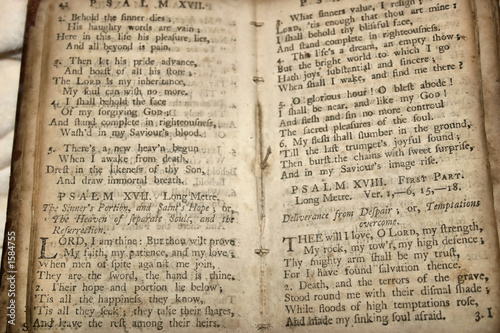 42 PSALM XVII.
2. Behold the sinner dies;
His haughty words are vain;
Here in this life his pleasure lies,
And all beyond is pain.
3. Then let his pride advance,
And boast of all his store:
The LORD is my inheritance,
My soul can wish no more.
4. I shall behold the face
Of my forgiving GOD;
And stand complete in righteousness,
Wash'd in my Saviour's blood.
5. There's a new heav'n begun,
When I awake from death,
Drest in the likeness of thy Son,
And draw immortal breath.
PSALM XVII. Long Metre.
The Sinner's Portion, and Saint's Hope; or,
The Heaven of separate Souls, and the
Resurrection.
LORD, I am thine: But thou wilt prove
My faith, my patience, and my love;
When men of spite against me join,
They are the sword, the hand is thine.
2. Their hope and portion lie below;
'Tis all the happiness they know,
'Tis all they seek; they take their shares,
And leave the rest among their heirs.
3. What sinners value, I resign;
LORD, 'tis enough that thou art mine:
I shall behold thy blissful face,
And stand complete in righteousness.
4. This life's a dream, an empty show;
But the bright world to which I go
Hath joys substantial and sincere;
When shall I wake, and find me there?
5. O glorious hour! O blest abode!
I shall be near, and like my GOD!
And flesh and sin no more controul
The sacred pleasures of the soul.
6. My flesh shall slumber in the ground,
Till the last trumpet's joyful sound;
Then burst the chains with sweet surprise,
And in my Saviour's image rise.
PSALM XVIII. FIRST PART.
Long Metre. Ver. 1,—6, 15,—18.
Deliverance from Despair; or, Temptations
overcome.
THEE will I love, O LORD, my strength,
My rock, my tow'r, my high defence;
Thy mighty arm shall be my trust,
For I have found salvation thence.
2. Death, and the terrors of the grave,
Stood round me with their dismal shade;
While floods of high temptations rose,
And made my sinking soul afraid.
3. I
Adobe Stock | #1584755